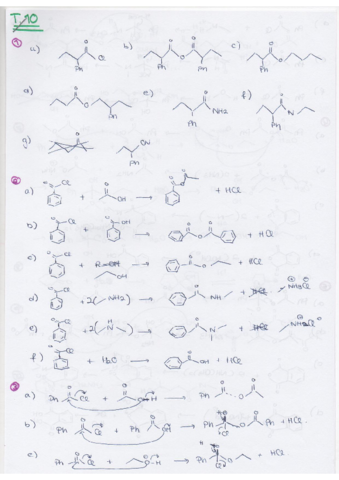 T.10
1
a) O Cl Ph b) O O O Ph Ph c) O O Ph
d) O O Ph e) O NH2 Ph f) O N Ph
g) CN Ph
2
a) O Cl + O OH → O O O + HCl
b) O Cl + O OH → O O O + HCl
c) O Cl + R-OH OH → O O + HCl
d) O Cl + 2( NH2) → O NH + HCl NH3Cl
e) O Cl + 2( N H ) → O N + HCl NH2Cl
f) O Cl + H2O → O OH + HCl
3
a) Ph O Cl + O O-H → Ph O O O
b) Ph O Cl + Ph O OH → Ph O Cl O O Ph + HCl
c) Ph O Cl + O-H → Ph O Cl O + HCl